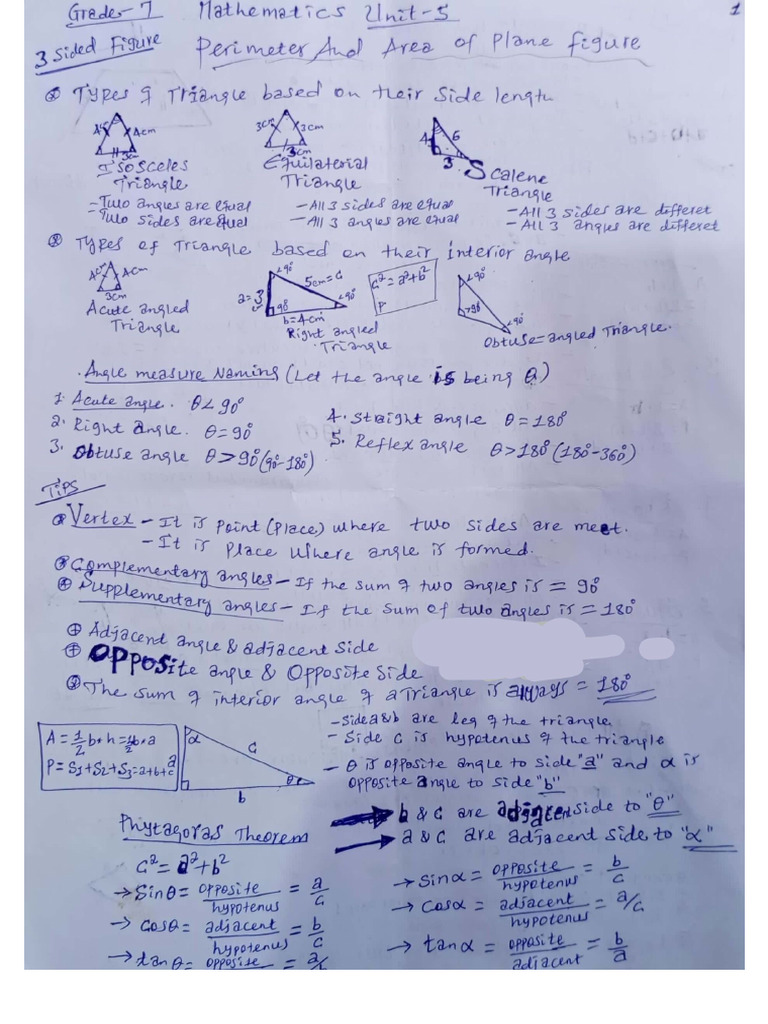 Grade-7 Mathematics Unit-5 1
3 Sided Figure Perimeter And Area of Plane figure
Types of Triangle based on their side length
4cm 4cm 3cm 3cm 3cm 3cm 4 6 3
Isosceles Triangle Equilaterial Triangle Scalene Triangle
= Two angles are equal - All 3 sides are equal - All 3 sides are differet
Two sides are equal - All 3 angles are equal - All 3 angles are differet
Types of Triangle based on their interior angle
4cm 4cm 3cm <90° 5cm = c c² = a²+b² <90°
a=3 90° <90° P >90° <90°
b=4cm
Acute angled Triangle Right angled Triangle Obtuse=angled Triangle.
Angle measure Naming (Let the angle is being θ)
1. Acute angle. θ<90°
2. Right angle. θ=90° 4. Straight angle θ=180°
3. Obtuse angle θ>90° (90°-180°) 5. Reflex angle θ>180° (180°-360°)
Tips
Vertex - It is point (place) where two sides are meet.
- It is place where angle is formed.
Complementary angles - If the sum of two angles is = 90°
Supplementary angles - If the sum of two angles is = 180°
Adjacent angle & adjacent side
Opposite angle & Opposite side
The sum of interior angle of a Triangle is always = 180°
A = 1/2 b*h = 1/2 b*a
P = S1+S2+S3 = a+b+c
α c a θ b
- Side a&b are leg of the triangle
- Side c is hypotenus of the triangle
- θ is opposite angle to side "a" and α is
opposite angle to side "b"
b & c are adjacent side to "θ"
a & c are adjacent side to "α"
Phytagoras Theorem
c² = a²+b²
→ Sinθ = opposite/hypotenus = a/c → Sinα = opposite/hypotenus = b/c
→ cosθ = adjacent/hypotenus = b/c → cosα = adjacent/hypotenus = a/c
→ tanθ = opposite = a/ → tanα = opposite/adjacent = b/a